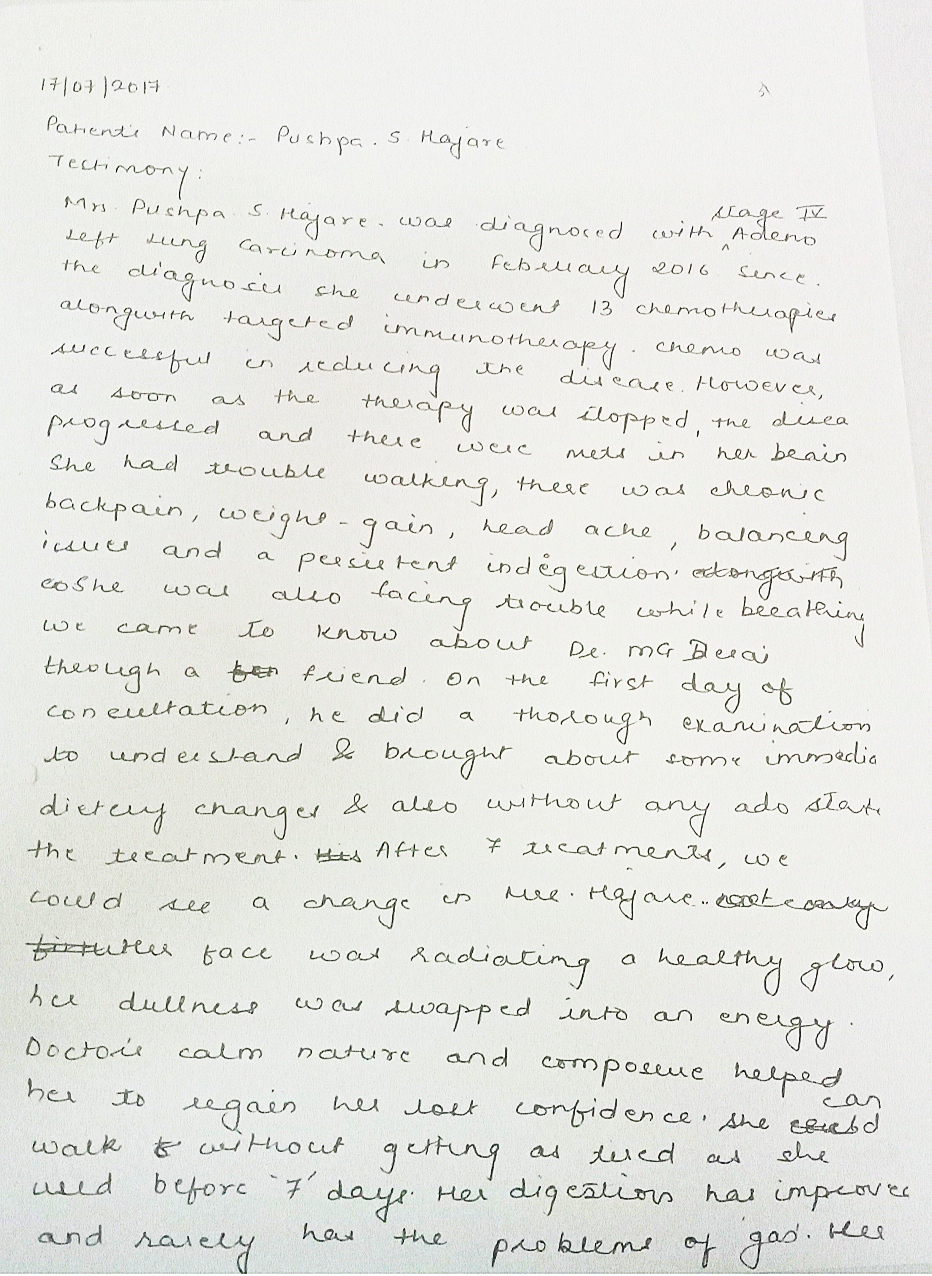 17/07/2017
Patient's Name:- Pushpa. S. Hajare
Testimony:
Mrs. Pushpa S. Hajare. was diagnosed with stage IV Adeno
Left Lung Carcinoma in February 2016 since.
the diagnosis she underwent 13 chemotherapies
alongwith targeted immunotherapy. Chemo was
successful in reducing the disease. However,
as soon as the therapy was stopped, the disea
progressed and there were mets in her brain
She had trouble walking, there was chronic
backpain, weight-gain, head ache, balancing
issues and a persistent indegestion. alongwith
She was also facing trouble while breathing
we came to know about Dr. MG Desai
through a friend. On the first day of
consultation, he did a thorough examination
to understand & brought about some immedia
dietery changes & also without any ado start
the treatment. His After 7 treatments, we
could see a change in Mrs. Hajare.. not only
her face was radiating a healthy glow,
her dullness was swapped into an energy.
Doctor's calm nature and composure helped
her to regain her lost confidence. She could can
walk without getting as tired as she
used before '7' days. Her digestion has improved
and rarely has the problems of 'gas'. Her